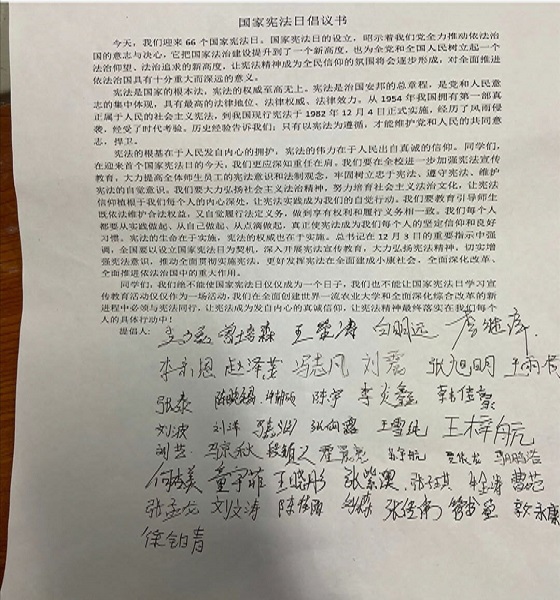 国家宪法日倡议书
今天，我们迎来 66 个国家宪法日。国家宪法日的设立，昭示着我们党全力推动依法治
国的意志与决心，它把国家法治建设提升到了一个新高度，也为全党和全国人民树立起一个
法治仰望、法治追求的新高度，让宪法精神成为全民信仰的氛围将会逐步形成，对全面推进
依法治国具有十分重大而深远的意义。
宪法是国家的根本法，宪法的权威至高无上。宪法是治国安邦的总章程，是党和人民意
志的集中体现，具有最高的法律地位、法律权威、法律效力。从 1954 年我国拥有第一部真
正属于人民的社会主义宪法，到我国现行宪法于 1982 年 12 月 4 日正式实施，经历了风雨侵
袭，经受了时代考验。历史经验告诉我们：只有以宪法为遵循，才能维护党和人民的共同意
志，捍卫。
宪法的根基在于人民发自内心的拥护，宪法的伟力在于人民出自真诚的信仰。同学们，
在迎来首个国家宪法日的今天，我们更应深知重任在肩。我们要在全校进一步加强宪法宣传
教育，大力提高全体师生员工的宪法意识和法制观念，牢固树立忠于宪法、遵守宪法、维护
宪法的自觉意识。我们要大力弘扬社会主义法治精神，努力培育社会主义法治文化，让宪法
信仰植根于我们每个人的内心深处，让宪法实践成为我们的自觉行动。我们要教育引导师生
既依法维护合法权益，又自觉履行法定义务，做到享有权利和履行义务相一致。我们每个人
都要从实践做起、从自己做起、从点滴做起，真正使宪法成为我们每个人的坚定信仰和良好
习惯。宪法的生命在于实施，宪法的权威也在于实施。总书记在 12 月 3 日的重要指示中强
调，全国要以设立国家宪法日为契机，深入开展宪法宣传教育，大力弘扬宪法精神，切实增
强宪法意识，推动全面贯彻实施宪法，更好发挥宪法在全面建成小康社会、全面深化改革、
全面推进依法治国中的重大作用。
同学们，我们绝不能使国家宪法日仅仅成为一个日子，我们也不能让国家宪法日学习宣
传教育活动仅仅作为一场活动，我们在全面创建世界一流农业大学和全面深化综合改革的新
进程中必须与宪法同行，让宪法成为发自内心的真诚信仰，让宪法精神最终落实在我们每个
人的具体行动中！
提倡人： 曾培森 王莹涛 白明远
李新恩 赵泽莹 冯志凡 刘震 张旭明
张泰 陈宇 李炎鑫 韩佳豪
刘波 刘洋 张向露 王雪纯 王梓航
马京秋
何楠美 童宇菲 王晓彤 张紫溟
张孟龙 刘文涛 陈佳丽 张佳南
徐铂青